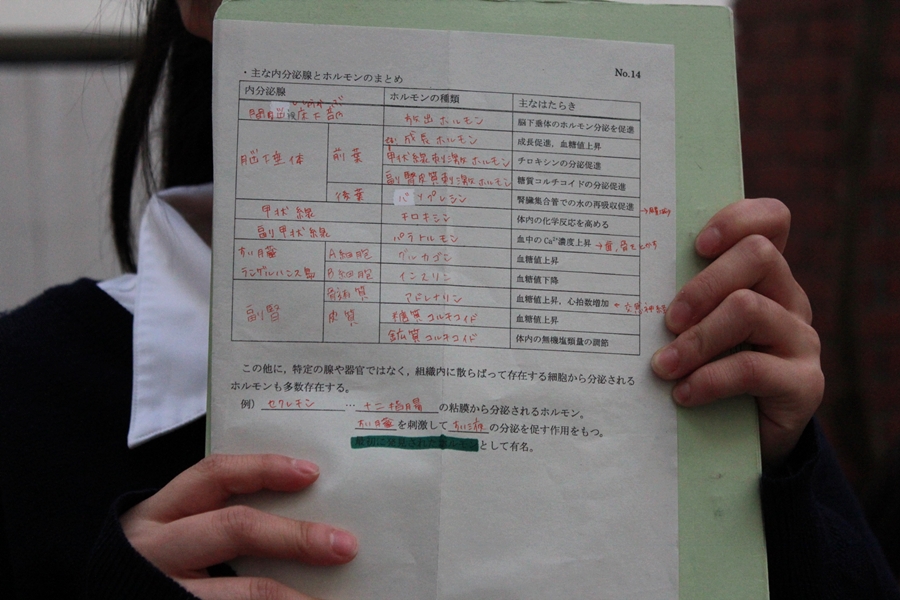 ・主な内分泌腺とホルモンのまとめ No.14
内分泌腺 ホルモンの種類 主なはたらき
間脳視床下部 放出ホルモン 脳下垂体のホルモン分泌を促進
脳下垂体 前葉 成長ホルモン 成長促進，血糖値上昇
甲状腺刺激ホルモン チロキシンの分泌促進
副腎皮質刺激ホルモン 糖質コルチコイドの分泌促進
後葉 バソプレシン 腎臓集合管での水の再吸収促進
甲状腺 チロキシン 体内の化学反応を高める
副甲状腺 パラトルモン 血中の Ca²⁺濃度上昇
すい臓 A細胞 グルカゴン 血糖値上昇
ランゲルハンス島 B細胞 インスリン 血糖値下降
副腎 髄質 アドレナリン 血糖値上昇，心拍数増加 ← 交感神経
皮質 糖質コルチコイド 血糖値上昇
鉱質コルチコイド 体内の無機塩類量の調節
この他に，特定の腺や器官ではなく，組織内に散らばって存在する細胞から分泌される
ホルモンも多数存在する。
例）セクレチン … 十二指腸の粘膜から分泌されるホルモン。
すい臓を刺激してすい液の分泌を促す作用をもつ。
最初に発見されたホルモンとして有名。